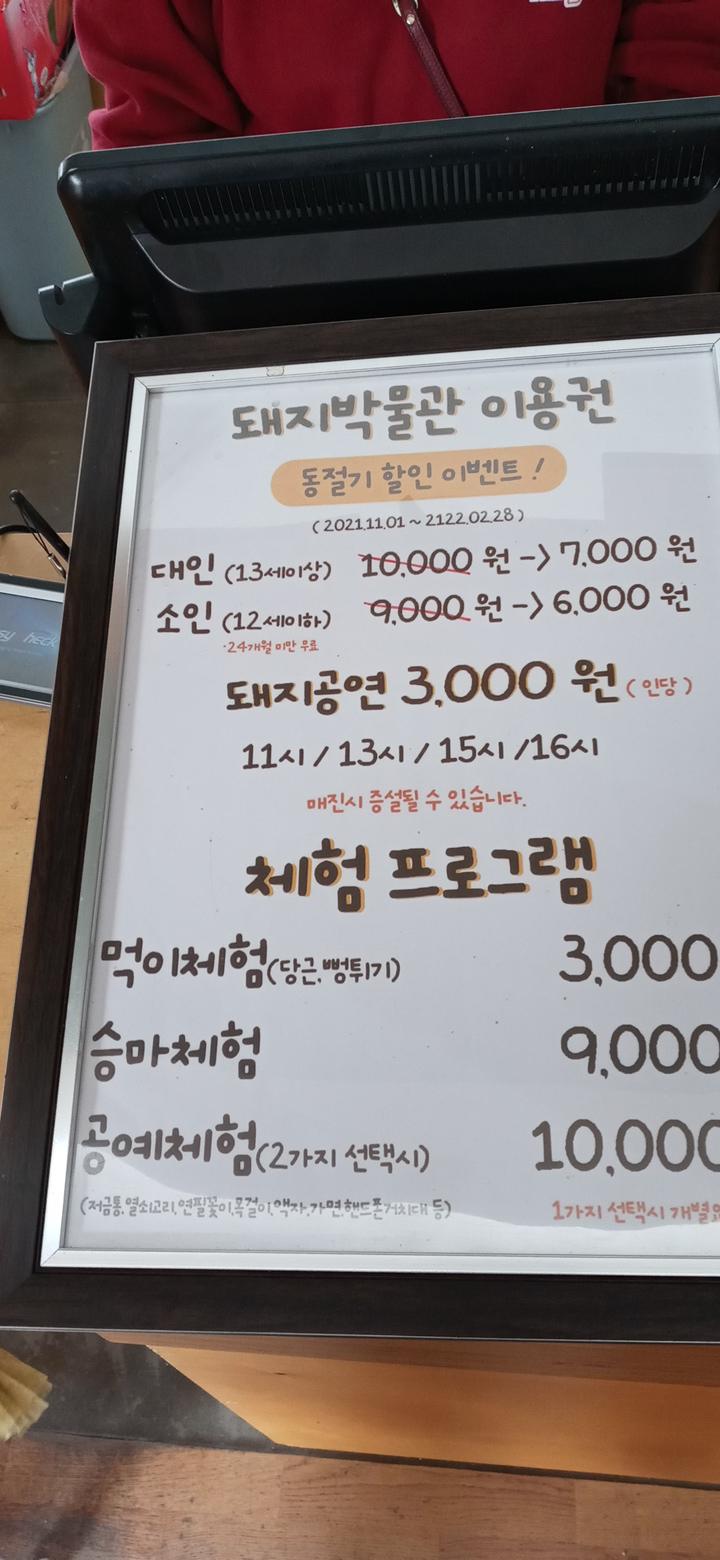 돼지박물관 이용권
동절기 할인 이벤트!
(2021.11.01 ~ 2122.02.28)
대인 (13세이상) 10,000 원 -> 7,000 원
소인 (12세이하) 9,000 원 -> 6,000 원
·24개월 미만 무료
돼지공연 3,000 원 (인당)
11시 / 13시 / 15시 /16시
매진시 증설될 수 있습니다.
체험 프로그램
먹이체험(당근,뻥튀기) 3,000
승마체험 9,000
공예체험(2가지 선택시) 10,000
(저금통,열쇠고리,연필꽂이,목걸이,액자,가면,핸드폰거치대 등) 1가지 선택시 개별